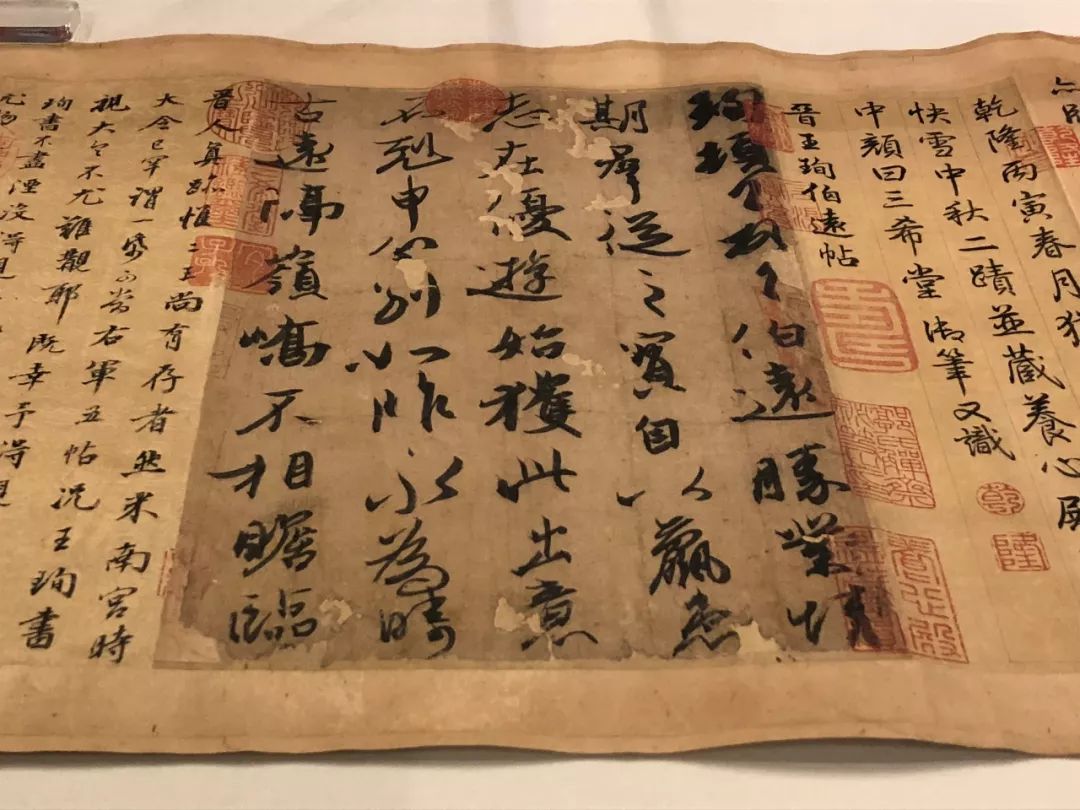 乾隆丙寅春月獲
快雪中秋二蹟並藏養心殿
中顏曰三希堂御筆又識
乾
隆
晉王珣伯遠帖
珣頓首頓首伯遠勝業情
期群從之寶自以羸患
志在優遊始獲此出意
不剋申分別如昨永為疇
古遠隔嶺嶠不相瞻臨
晉人真跡惟二王尚有存者然米南宮時
大令已罕謂一帋可當右軍五帖況王珣書
視大令不尤難覯耶既幸予得見
珣書不盡湮沒得見